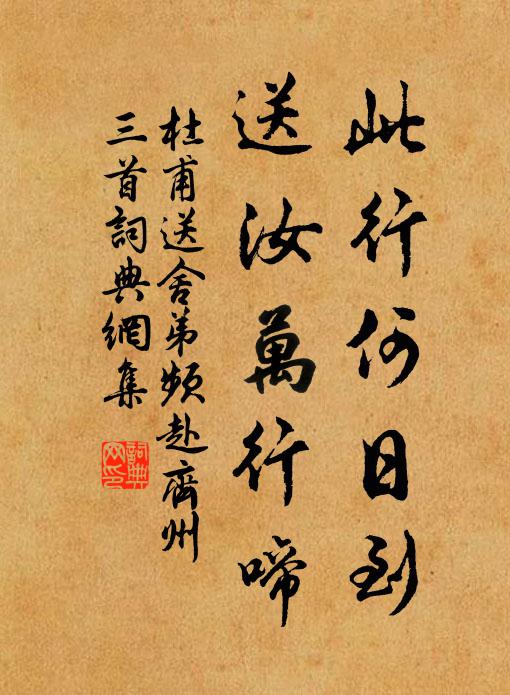 此行何日到
送汝萬行啼
杜甫送舍弟頻赴齊州
三首詞典網集
詞典網印